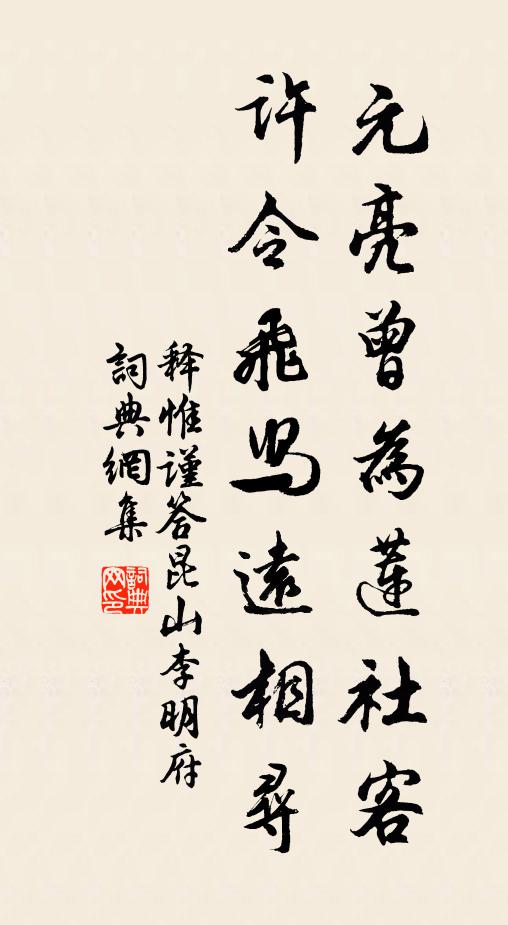 元亮曾為蓮社客
許令飛舄遠相尋
释惟謹答昆山李明府
詞典網集
詞典網印